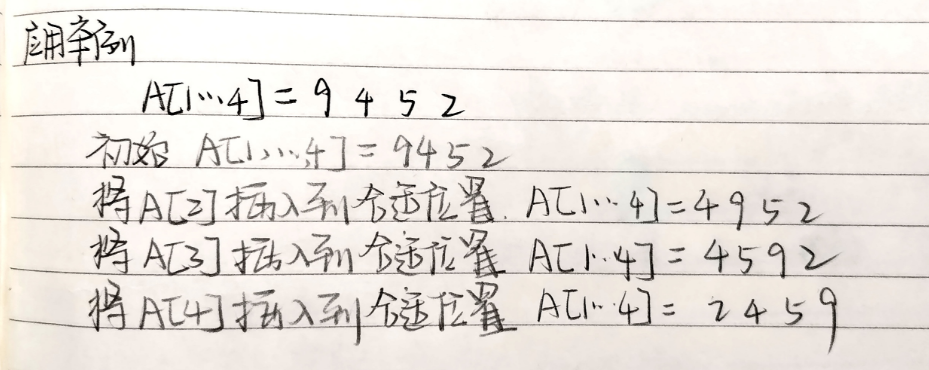 应用举例
A[1…4]=9 4 5 2
初始 A[1,…,4]=9452
将A[2]插入到合适位置. A[1…4]=4952
将A[3]插入到合适位置 A[1..4]=4592
将A[4]插入到合适位置 A[1…4]=2459